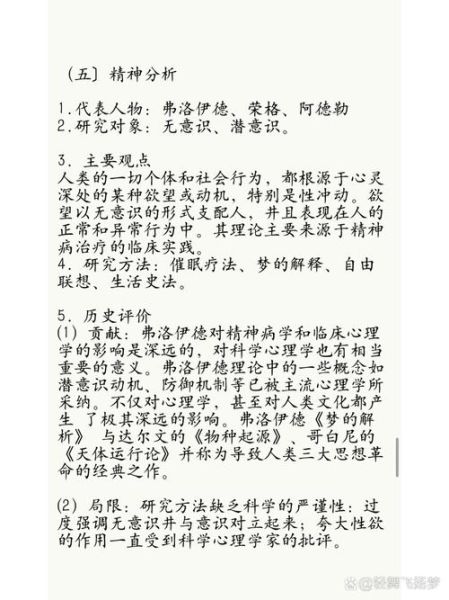 （五）精神分析
1.代表人物：弗洛伊德、荣格、阿德勒
2.研究对象：无意识、潜意识。
3. 主要观点
人类的一切个体和社会行为，都根源于心灵
深处的某种欲望或动机，特别是性冲动。欲
望以无意识的形式支配人，井且表现在人的
正常和异常行为中。其理论主要来源于精神
病治疗的临床实践。
4. 研究方法：催眠疗法、梦的解释、自由
联想、生活史法。
5. 历史评价
(1) 贡献：弗洛伊德对精神病学和临床心理
学的影响是深远的，对科学心理学也有相当
重要的意义。弗洛伊德理论中的一些概念如
潜意识动机、防御机制等已被主流心理学所
采纳。不仅对心理学，甚至对人类文化都产
生 了极其深远的影响。弗洛伊德《梦的解
析》 与达尔文的《物种起源》、哥白尼的
《天体运行论》并称为导致人类三大思想革
命的经典之作。
(2) 局限：研究方法缺乏科学的严谨性；过
度强调无意识井与意识对立起来；夸大性欲
的作用一直受到科学心理学家的批评。